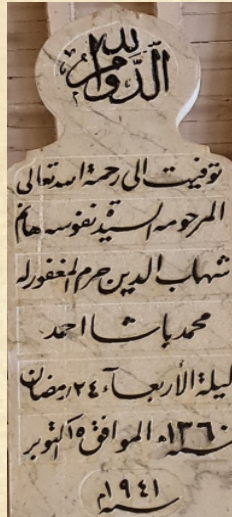 الدوام لله
توفيت الى رحمة الله تعالى
المرحومه السيدة نفوسه هانم
شهاب الدين حرم المغفورله
محمد باشا احمد
ليلة الأربعاء ٢٤ رمضان
سنة ١٣٦٠هـ الموافق ١٥ اكتوبر
سنة ١٩٤١م